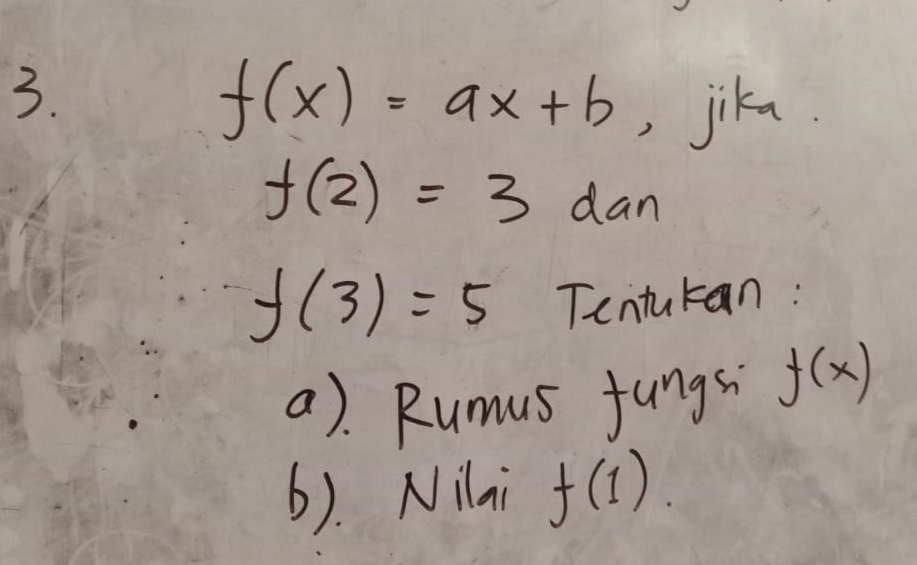 3. f(x) = ax + b, jika.
f(2) = 3 dan
f(3) = 5 Tentukan :
a). Rumus fungsi f(x)
b). Nilai f(1).